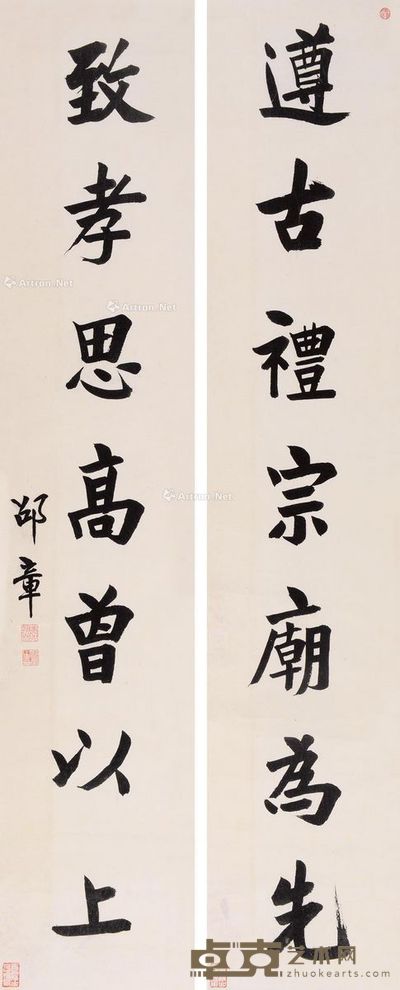 遵古禮宗廟為先
致孝思高曾以上
邵章
Artron.Net
Artron.Net
Artron.Net
卓克艺术网
zhuokearts.com